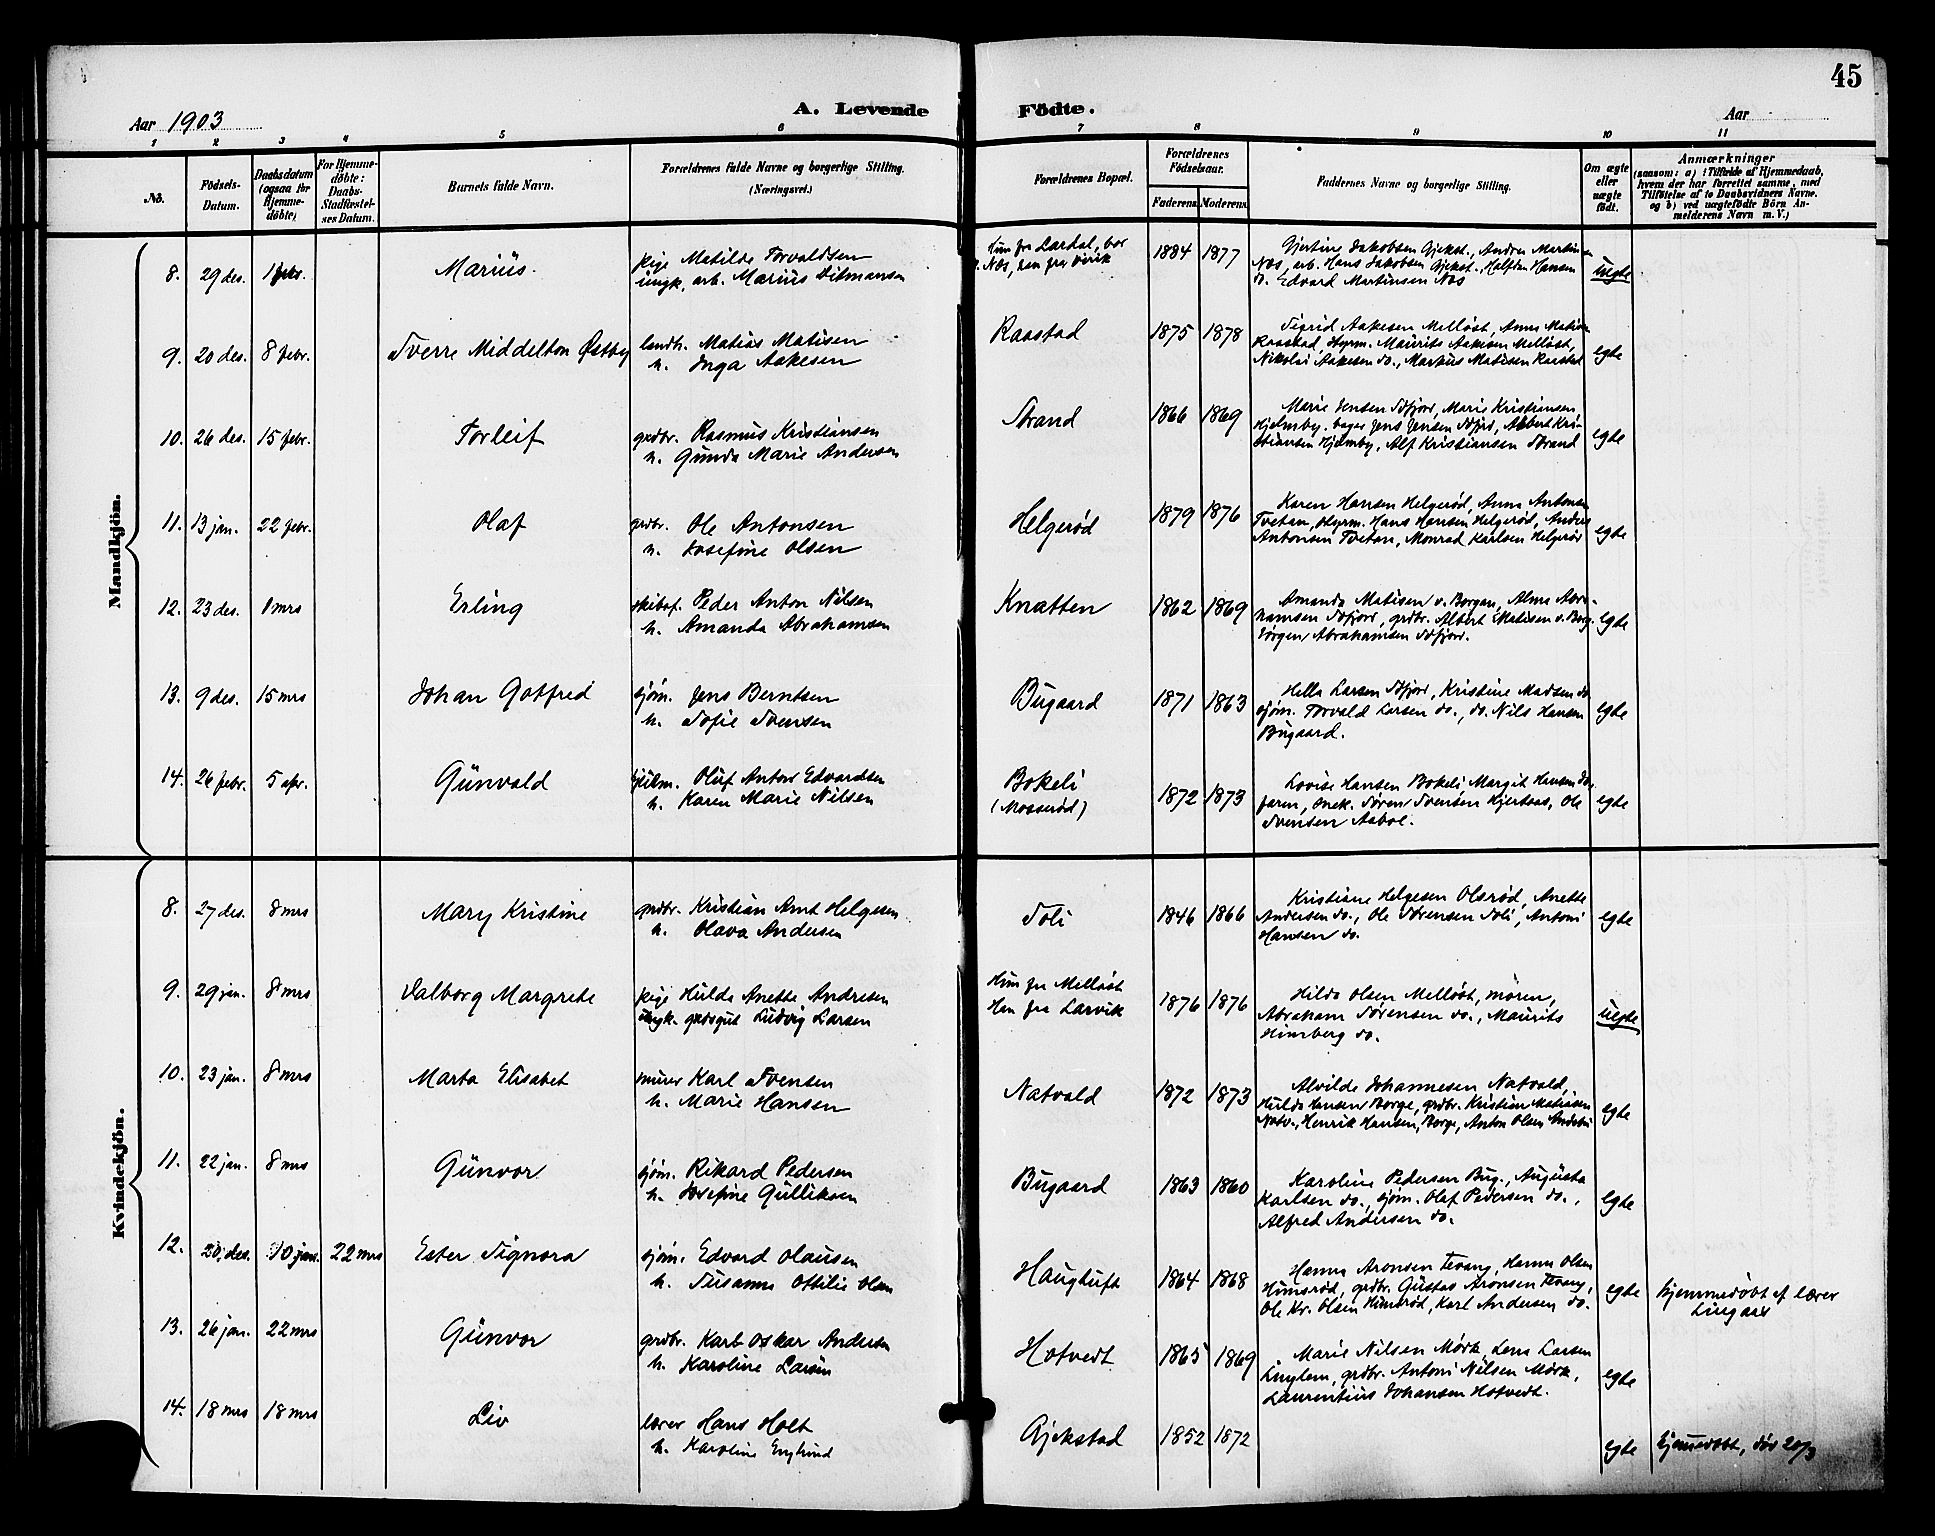 45
Aar 1903
A. Levende Födte.
Aar
1 2 3 4 5 6 7 8 9 10 11
No.
Födsels-Datum.
Daabsdatum (ogsaa for Hjemme-døbte)
For Hjemme-døbte: Daabs-Stadfæstel-ses Datum.
Barnets fulde Navn.
Forældrenes fulde Navne og borgerlige Stilling. (Næringsvei.)
Forældrenes Bopæl.
Forældrenes Fødselsaar.
Faderens Moderens
Faddernes Navne og borgerlige Stilling.
Om ægte eller uægte født.
Anmærkninger
(saasom: a) i Tilfælde af Hjemmedaab, hvem der har forrettet samme, med Tilføielse af to Daabsvidners Navne. og b) ved uægtefødte Børn An-melderens Navn m. V.)
Mandkjön.
8. 29 des. 1 febr. Mariüs. pige Matilde Torvaldsen
üngk. arb. Mariüs Ditmansen
Hun fra Lardal, bor
Næs, han fra
1884 1877
Gjertine Jakobsen Gjekst., Andrea Martinsen
Næs, arb. Hans Jakobsen Gjekst., Halfdan Hansen
do. Edvard Martinsen Næs
uegte
9. 20 des. 8 febr. Sverre Middelton Østby landh. Matias Matisen
h. Inga Aakesen
Raastad 1875 1878
Sigrid Aakesen Melløst, Anna Matisen
Raastad, Maurits Aakesen Melløst,
Nikolai Aakesen do., Markus Matisen Raastad
egte
10. 26 des. 15 febr. Torleif grdbr. Rasmus Kristiansen
h. Gunda Marie Andersen
Strand 1866 1869
Marie Jensen Sdfjord, Maria Kristiansen
Hjelmby, bager Jens Jensen Sdfjrd, Albert Kri-
stiansen Hjelmby, Alf Kristiansen Strand
egte
11. 13 jan. 22 febr. Olaf grdbr. Ole Antonsen
h. Josefine Olsen
Helgerød 1879 1876
Karen Hansen Helgerød, Anna Antonsen
Tveten, Hans Hansen Helgerød, Anders
Antonsen Tveten, Monrad Karlsen Helgerød
egte
12. 23 des. 1 mrs Erling skibsf. Peder Anton Nilsen
h. Amanda Abrahamsen
Knatten 1862 1869
Amanda Matisen v. Borgen, Alma Abra-
hamsen Sdfjord, grdbr. Albert Matisen v. Borg.
Jørgen Abrahamsen Sdfjord.
egte
13. 9 des. 15 mrs Johan Gotfred sjøm. Jens Berntsen
h. Sofie Svensen
Bügaard 1871 1863
Hella Larsen Sdfjord, Kristine Madsen do.
sjøm. Torvald Larsen do., do. Nils Hansen
Bügaard.
egte
14. 26 febr. 5 apr. Günvald Oluf Anton Edvardsen
h. Karen Marie Nilsen
Bokeli
(Mosserød)
1872 1873
Lovise Hansen Bokeli, Margit Hansen do.
faren, Søren Svensen Hjertaas, Ole
Svensen Aaboe.
egte
Kvindekjön.
8. 27 des. 8 mrs Mary Kristine grdbr. Kristian Amt Helgesen
h. Olava Andersen
Soli 1846 1866
Kristiane Helgesen Olsrød, Anette
Andersen do., Ole Sørensen Soli, Antoni
Hansen do.
egte
9. 29 jan. 8 mrs Valborg Margrete pige Hulda Anette Andresen
üngk. grdsgut Ludvig Larsen
Hun fra Melløst
Han fra Larvik
1876 1876
Hilda Olsen Melløst, moren,
Abraham Sørensen do., Maurits
Himberg do.
uegte
10. 23 jan. 8 mrs Marta Elisabet murer Karl Svensen
h. Marie Hansen
Natvald 1872 1873
Alvilde Johannesen Natvald,
Hulda Hansen Borge, grdbr. Kristian Matisen
Natv., Henrik Hansen, Borge, Anton Olsen
egte
11. 22 jan. 8 mrs Günvor sjøm. Rikard Pedersen
h. Josefine Gülliksen
Bügaard 1863 1860
Karoline Pedersen Bug., Augüsta
Karlsen do., sjøm. Olaf Pedersen do.,
Alfred Andersen do.
egte
12. 20 des. 30 jan. 22 mrs Ester Signora sjøm. Edvard Olausen
h. Susanna Ottilie Olsen
Haugtuft 1864 1868
Hanna Aronsen Tevang, Hanna Olsen
Hünsrød, grdbr. Güstav Aronsen Tevang,
Ole Kr. Olsen Hünsrød, Karl Andersen do.
egte
hjemmedøbt af lærer
Lingaas
13. 26 jan. 22 mrs Günvor grdbr. Karl Oskar Andersen
h. Karoline Larsen
Hotvedt 1865 1869
Marie Nilsen Mørk, Lena Larsen
grdbr. Antoni Nilsen Mørk,
Laurentius Johansen Hotvedt.
egte
14. 18 mrs 18 mrs Liv lærer Hans Holt
h. Karoline Englund
Gjekstad 1852 1872
egte
hjemmedøbt, død 20/3